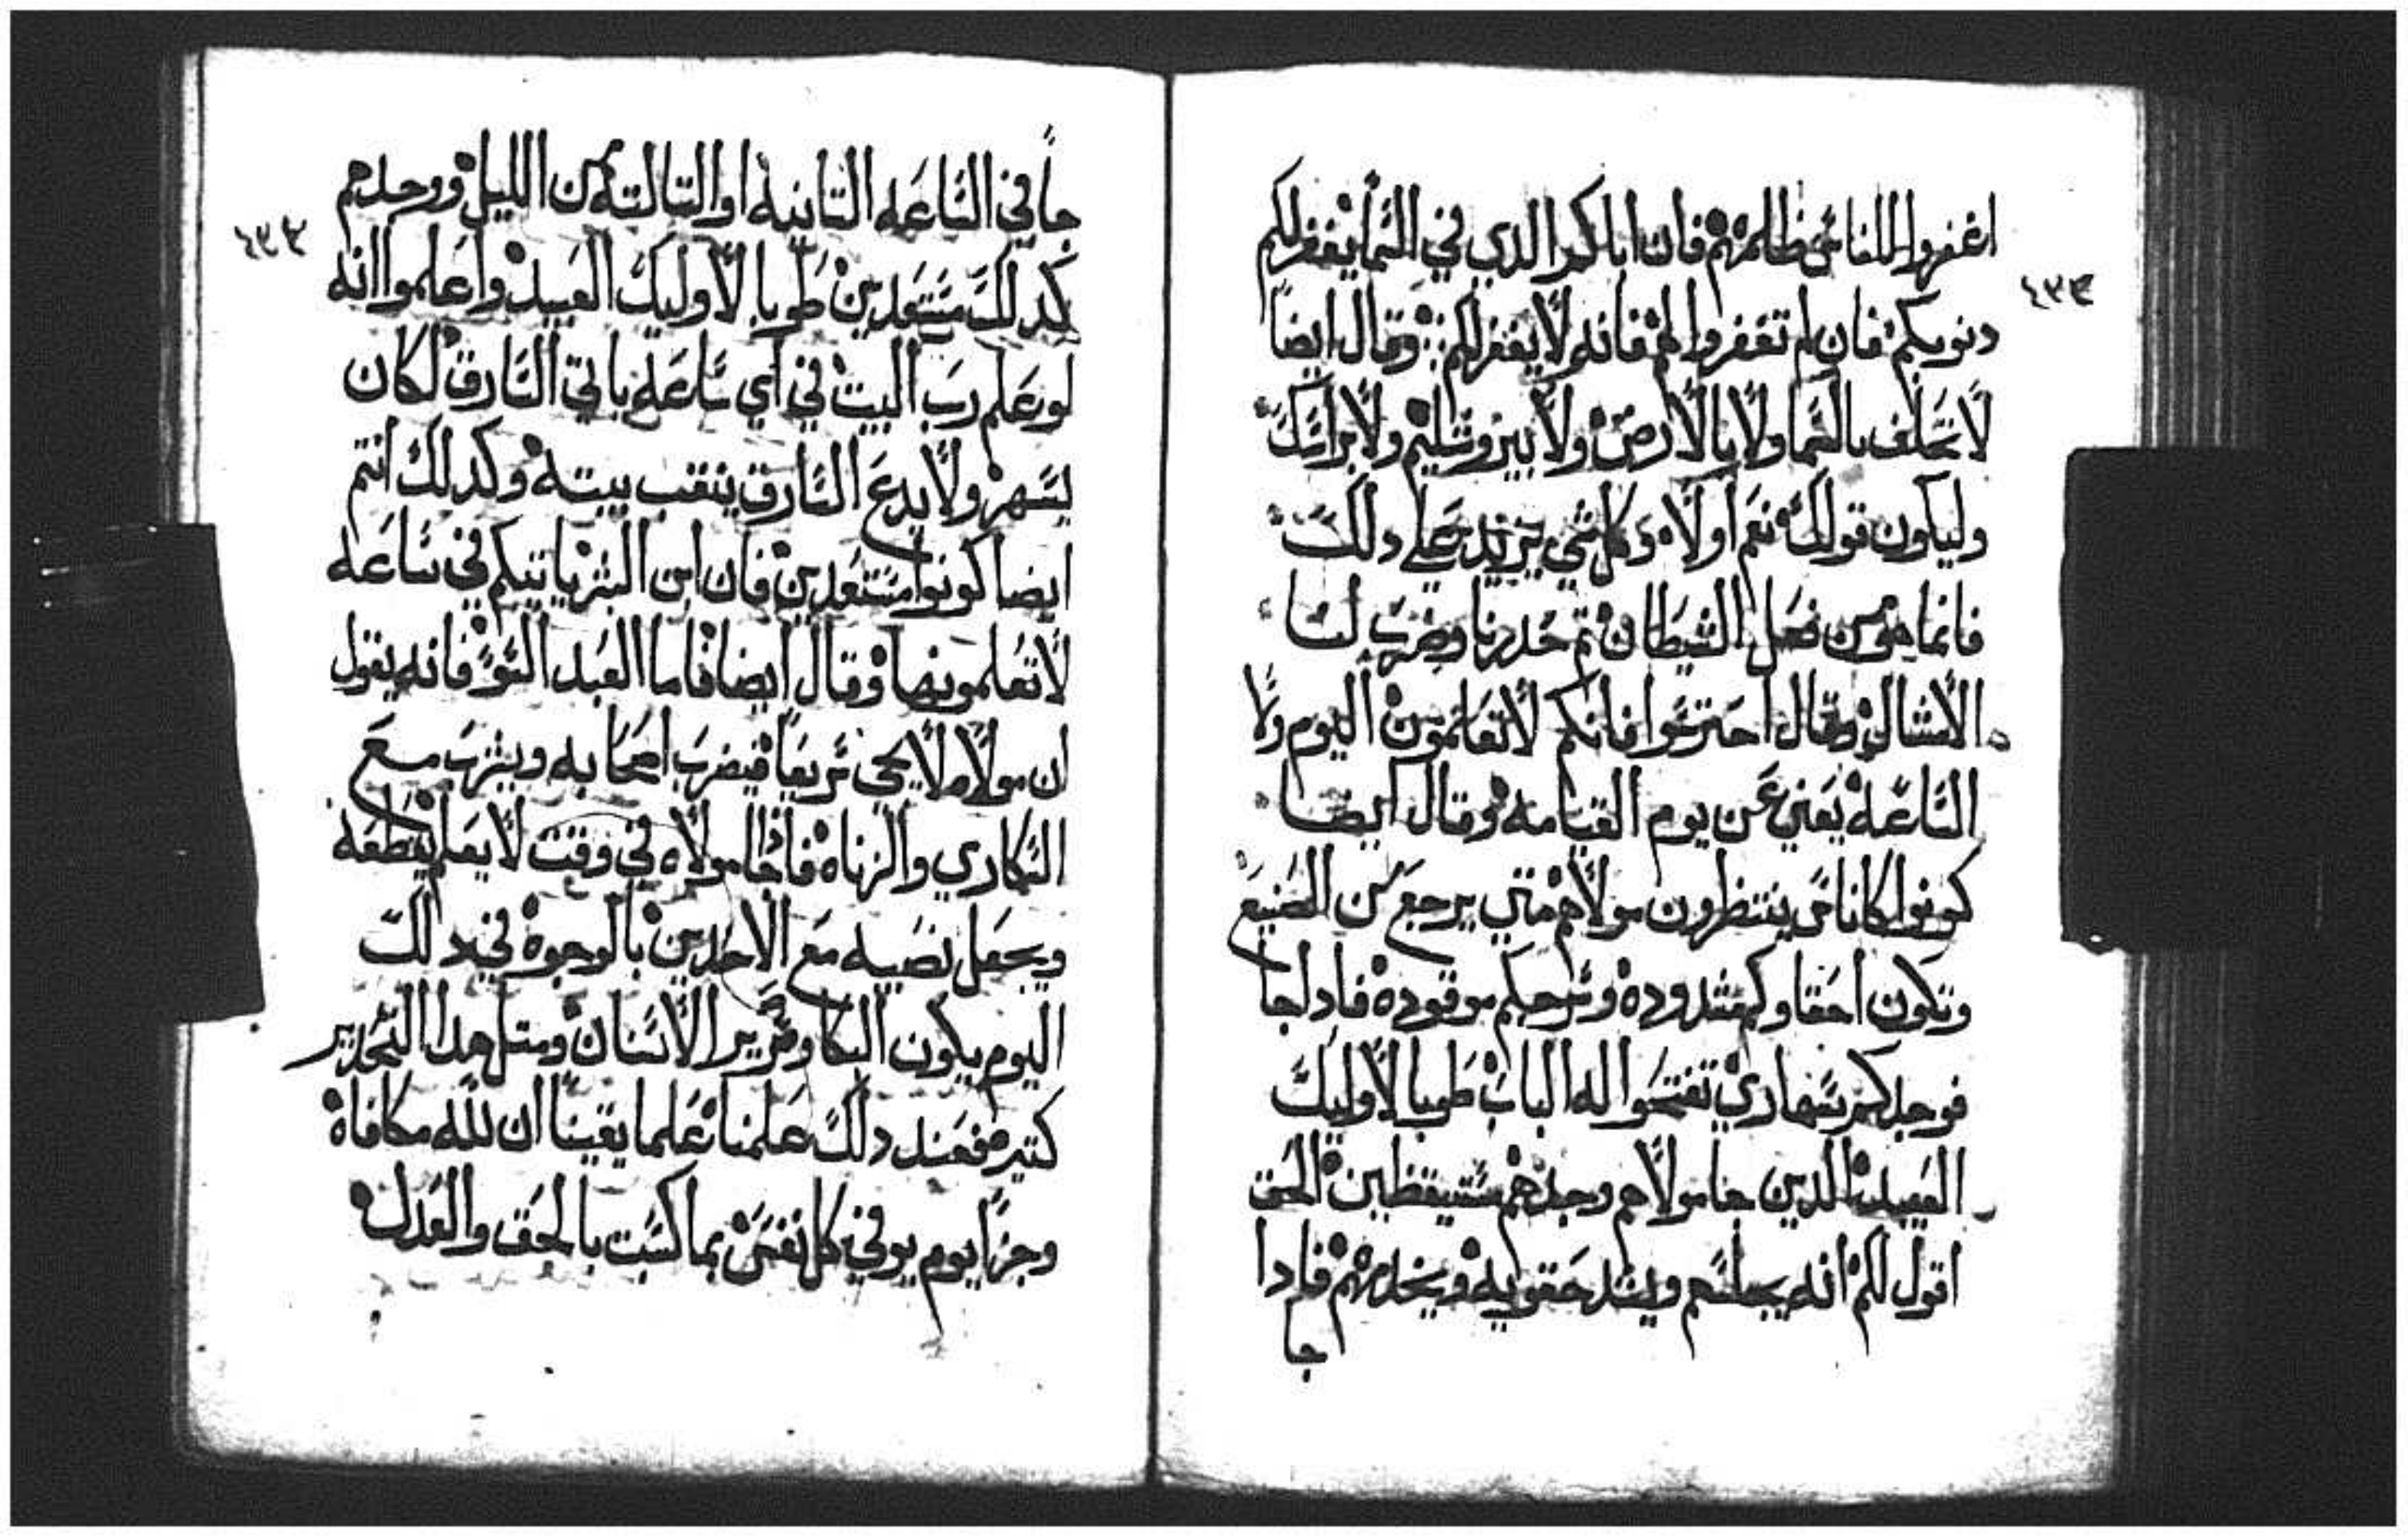 اغفروا للناس مظالمهم فان اباكم الدي في السما يغفر لكم
١٣٣
دنوبكم فان لم تغفروا لهم فانه لا يغفر لكم وقال ايضا
لا تحلف بالسما ولا بالارض ولا بيروشليم ولا براسك
وليكون قولك نعم او لاه وكل شي يزيد علي دلك
فانما هو من فعل الشيطان تم حدرنا وضرب لنا
الامتال وقال احترسوا فانكم لا تعلمون اليوم ولا
الساعه يعني عن يوم القيامه وقال ايضا
كونوا كاناس ينتظرون مولاهم متي يرجع من الصنيع
وتكون احقاوكم مشدوده وسرجكم موقوده فادا جا
فوجدكم سهاري تفتحوا له الباب طوبا لاوليك
العبيد الدين جا مولاهم وجدهم مستيقظين الحق
اقول لكم انه يجلسهم ويشد حقويه ويخدمهم فادا
جا
جا في الساعه التانيه او التالته من الليل ووجدهم
كدلك مستعدين طوبا لاوليك العبيد واعلموا انه
لو علم رب البيت في اي ساعه ياتي السارق لكان
يسهر ولا يدع السارق ينقب بيته وكدلك انتم
ايضا كونوا مستعدين فان ابن البشر ياتيكم في ساعه
لا تعلمونها وقال ايضا فاما العبد السو فانه يقول
ان مولاه لا يجي سريعا فيضرب اصحابه ويشرب مع
السكاري والزناه فاذا جا مولاه في وقت لا يعلم يقطعه
ويجعل نصيبه مع الاخدين بالوجوه في دلك
اليوم يكون البكا وصرير الاسنان ومتل هدا التحدير
كتير فعند دلك علمنا علما يقينا ان لله مكافاه
وجزا يوم يوفي كل نفس بما كسبت بالحق والعدل